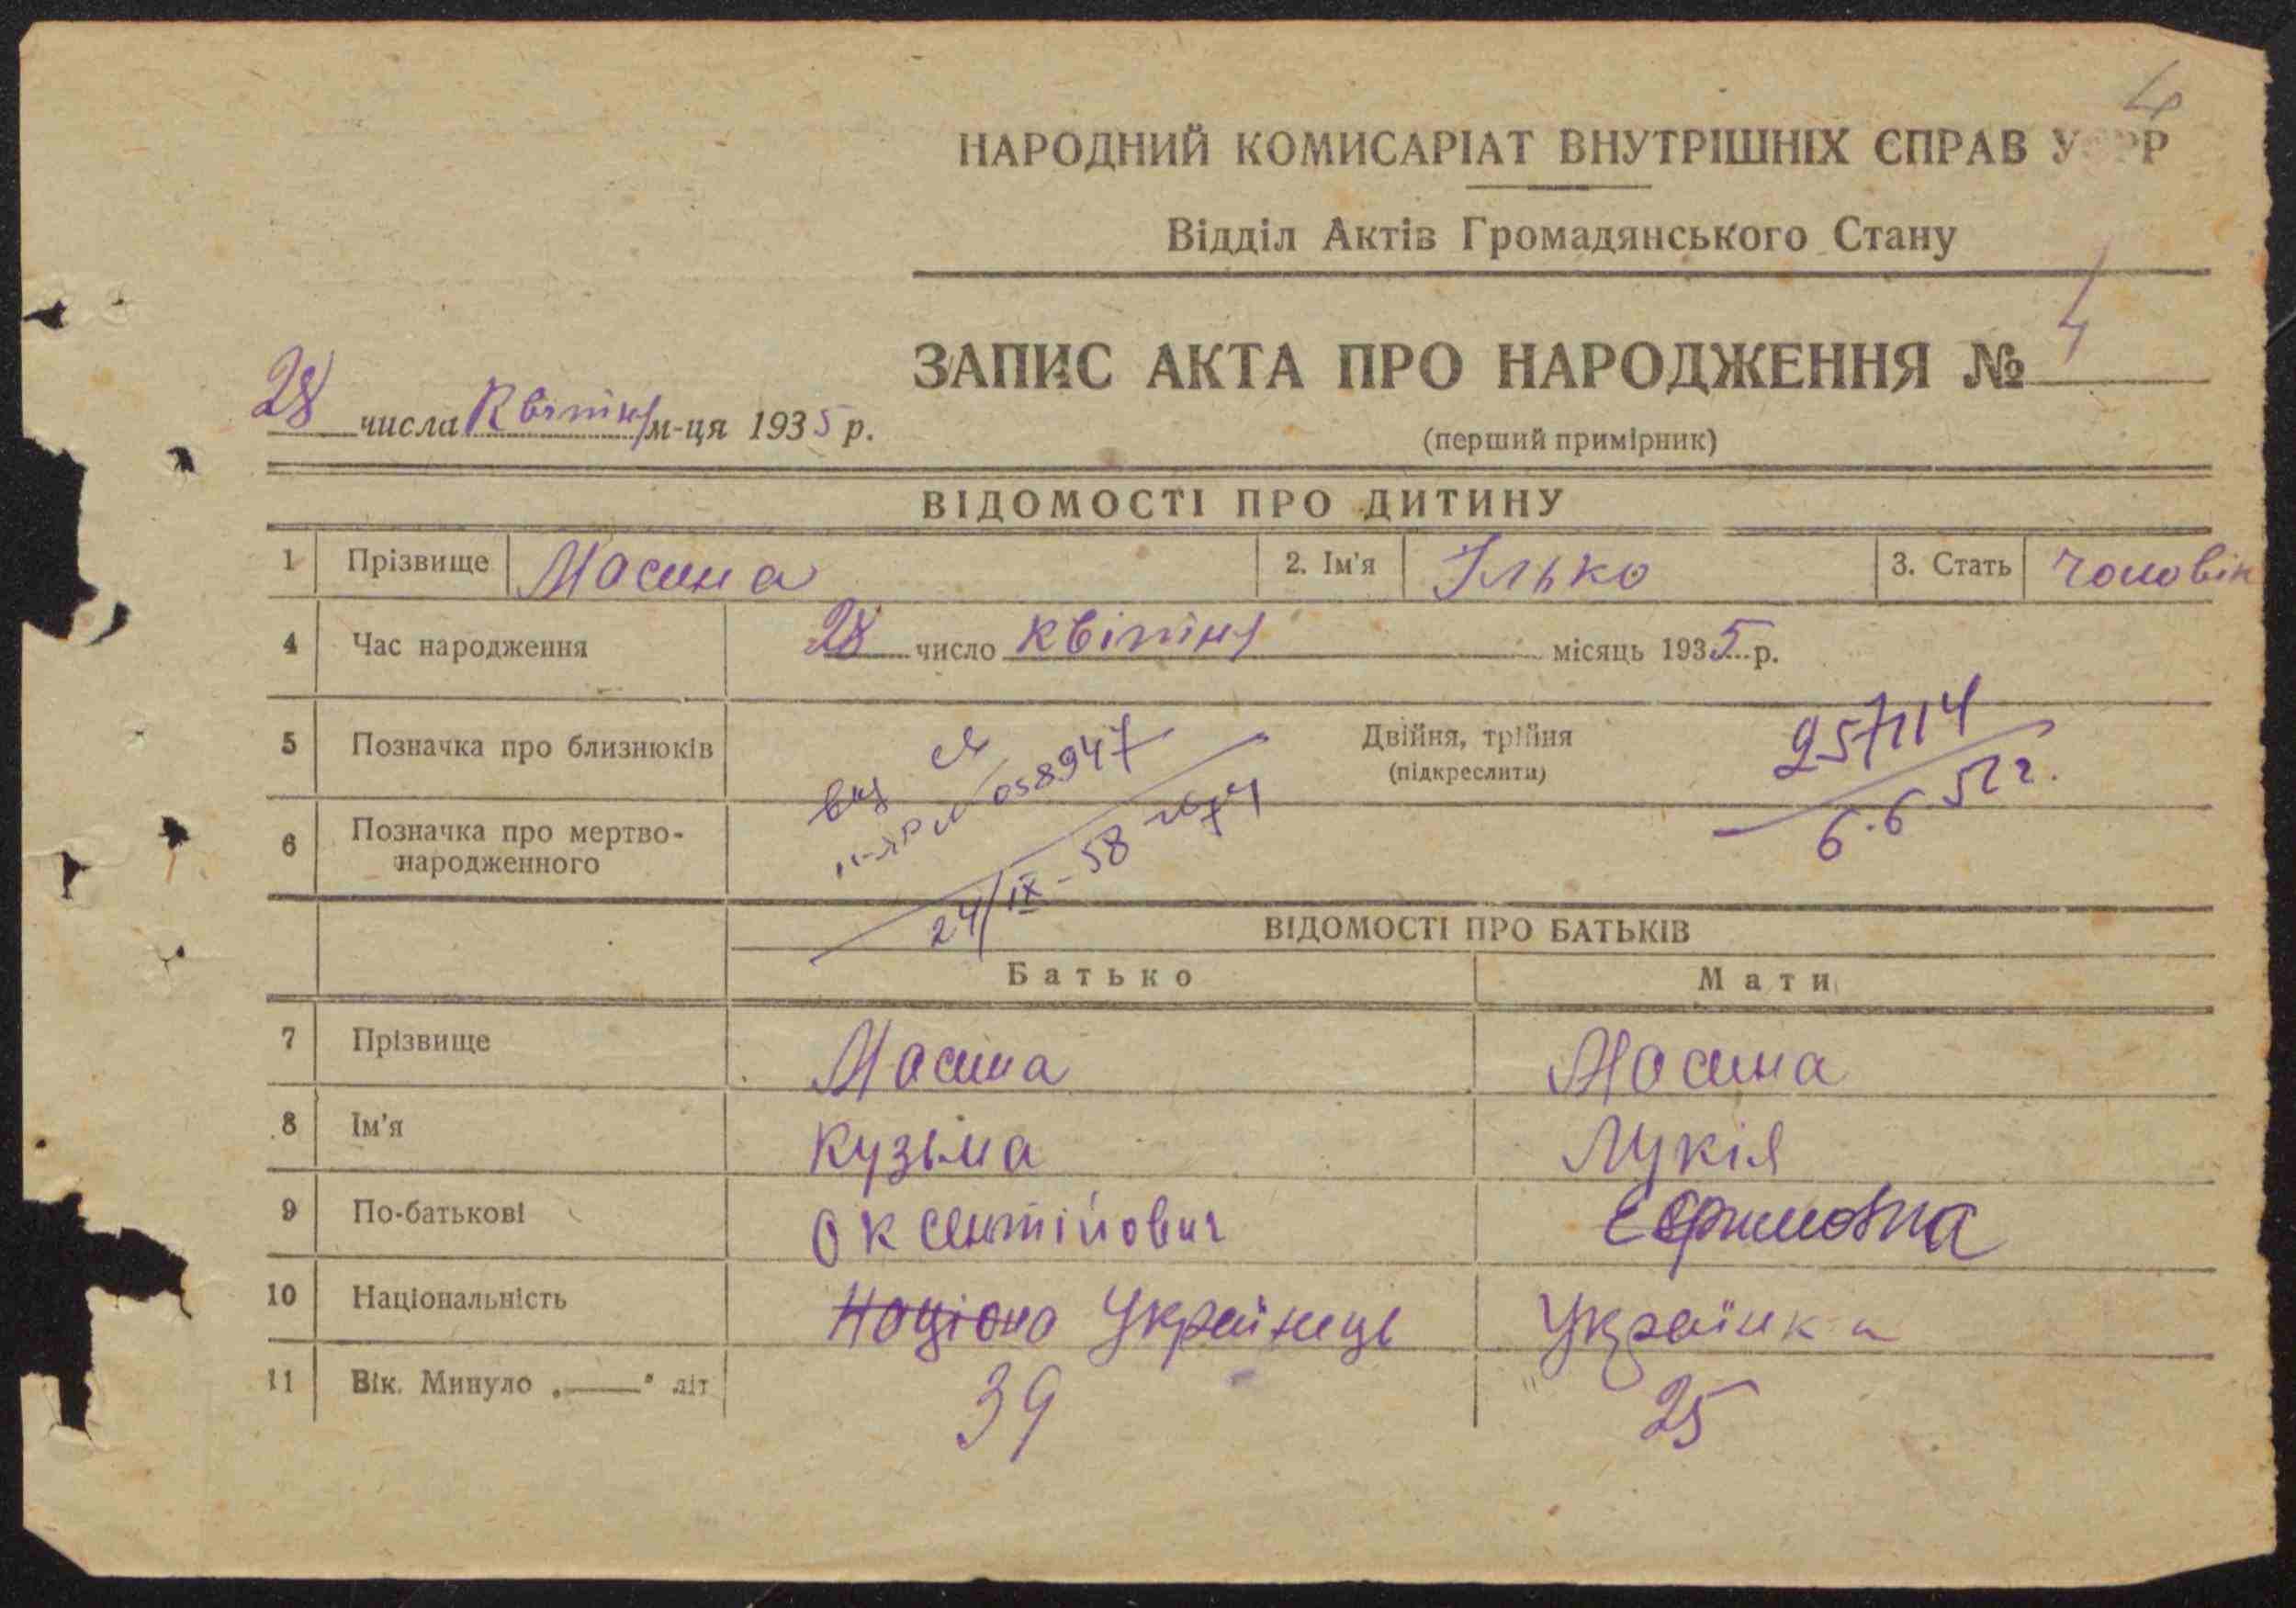 4
НАРОДНИЙ КОМИСАРІАТ ВНУТРІШНІХ СПРАВ УСРР
Відділ Актів Громадянського Стану
ЗАПИС АКТА ПРО НАРОДЖЕННЯ № 4
28 числа Квітня м-ця 1935 р.
(перший примірник)
ВІДОМОСТІ ПРО ДИТИНУ
1 Прізвище Мосина 2. Ім'я Ілько 3. Стать чоловік
4 Час народження 28 число квітня місяць 1935 р.
5 Позначка про близнюків Двійня, трійня
(підкреслити)
257114
6.6 52 г.
058947
24/IX-58
6 Позначка про мертво-
народженного
ВІДОМОСТІ ПРО БАТЬКІВ
Батько Мати
7 Прізвище Мосина Мосина
8 Ім'я Кузьма Лукія
9 По-батькові Оксентійович Єфимовна
10 Національність Націона Українець Українка
11 Вік. Минуло „——" літ 39 25